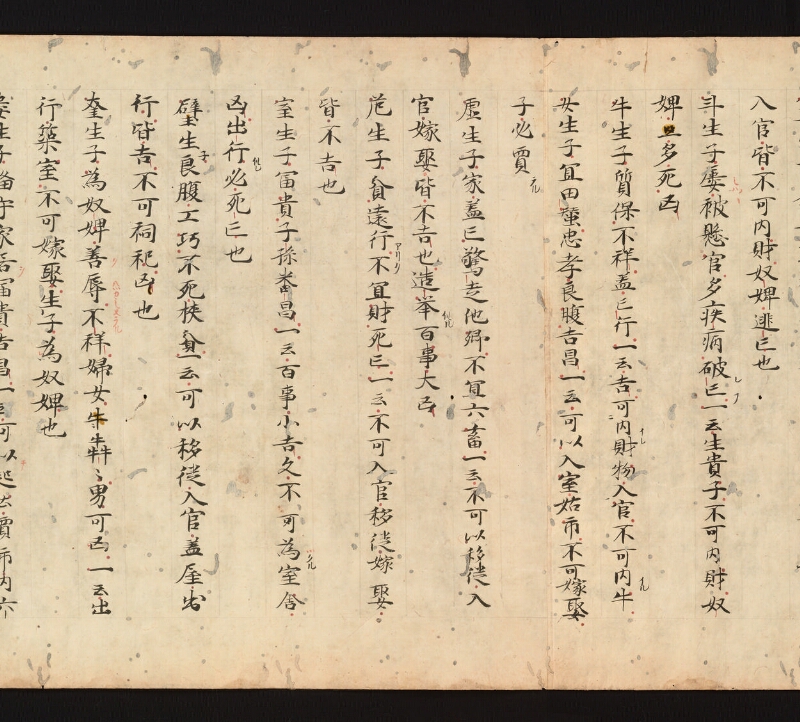 入官皆不可内財奴婢逃亡也
斗生子屡被懸官多疾病破亡一云生貴子不可内財奴
婢且多死凶
牛生子質保不祥蓋亡行一云吉可内財物入官不可内牛
女生子宜田蚕忠孝良腹吉昌一云可以入室姑市不可嫁娶
子必賈
虚生子家蓋亡驚走他郷不宜六畜一云不可以移徙入
官嫁娶皆不吉也造举百事大凶
危生子貧遠行不宜財死亡一云不可入官移徙嫁娶
皆不吉也
室生子冨貴子孫番昌一云百事小吉久不可為室舍
凶出行必死亡也
壁生良腹工巧不死秩貧一云可以移徙入官蓋屋出
行皆吉不可祠祀凶也
奎生子為奴婢善辱不祥婦女牛牛牸〻男可凶一云出
行築室不可嫁娶生子為奴婢也
婁生子備守家吉冨貴吉昌一云可以起土賣市内六